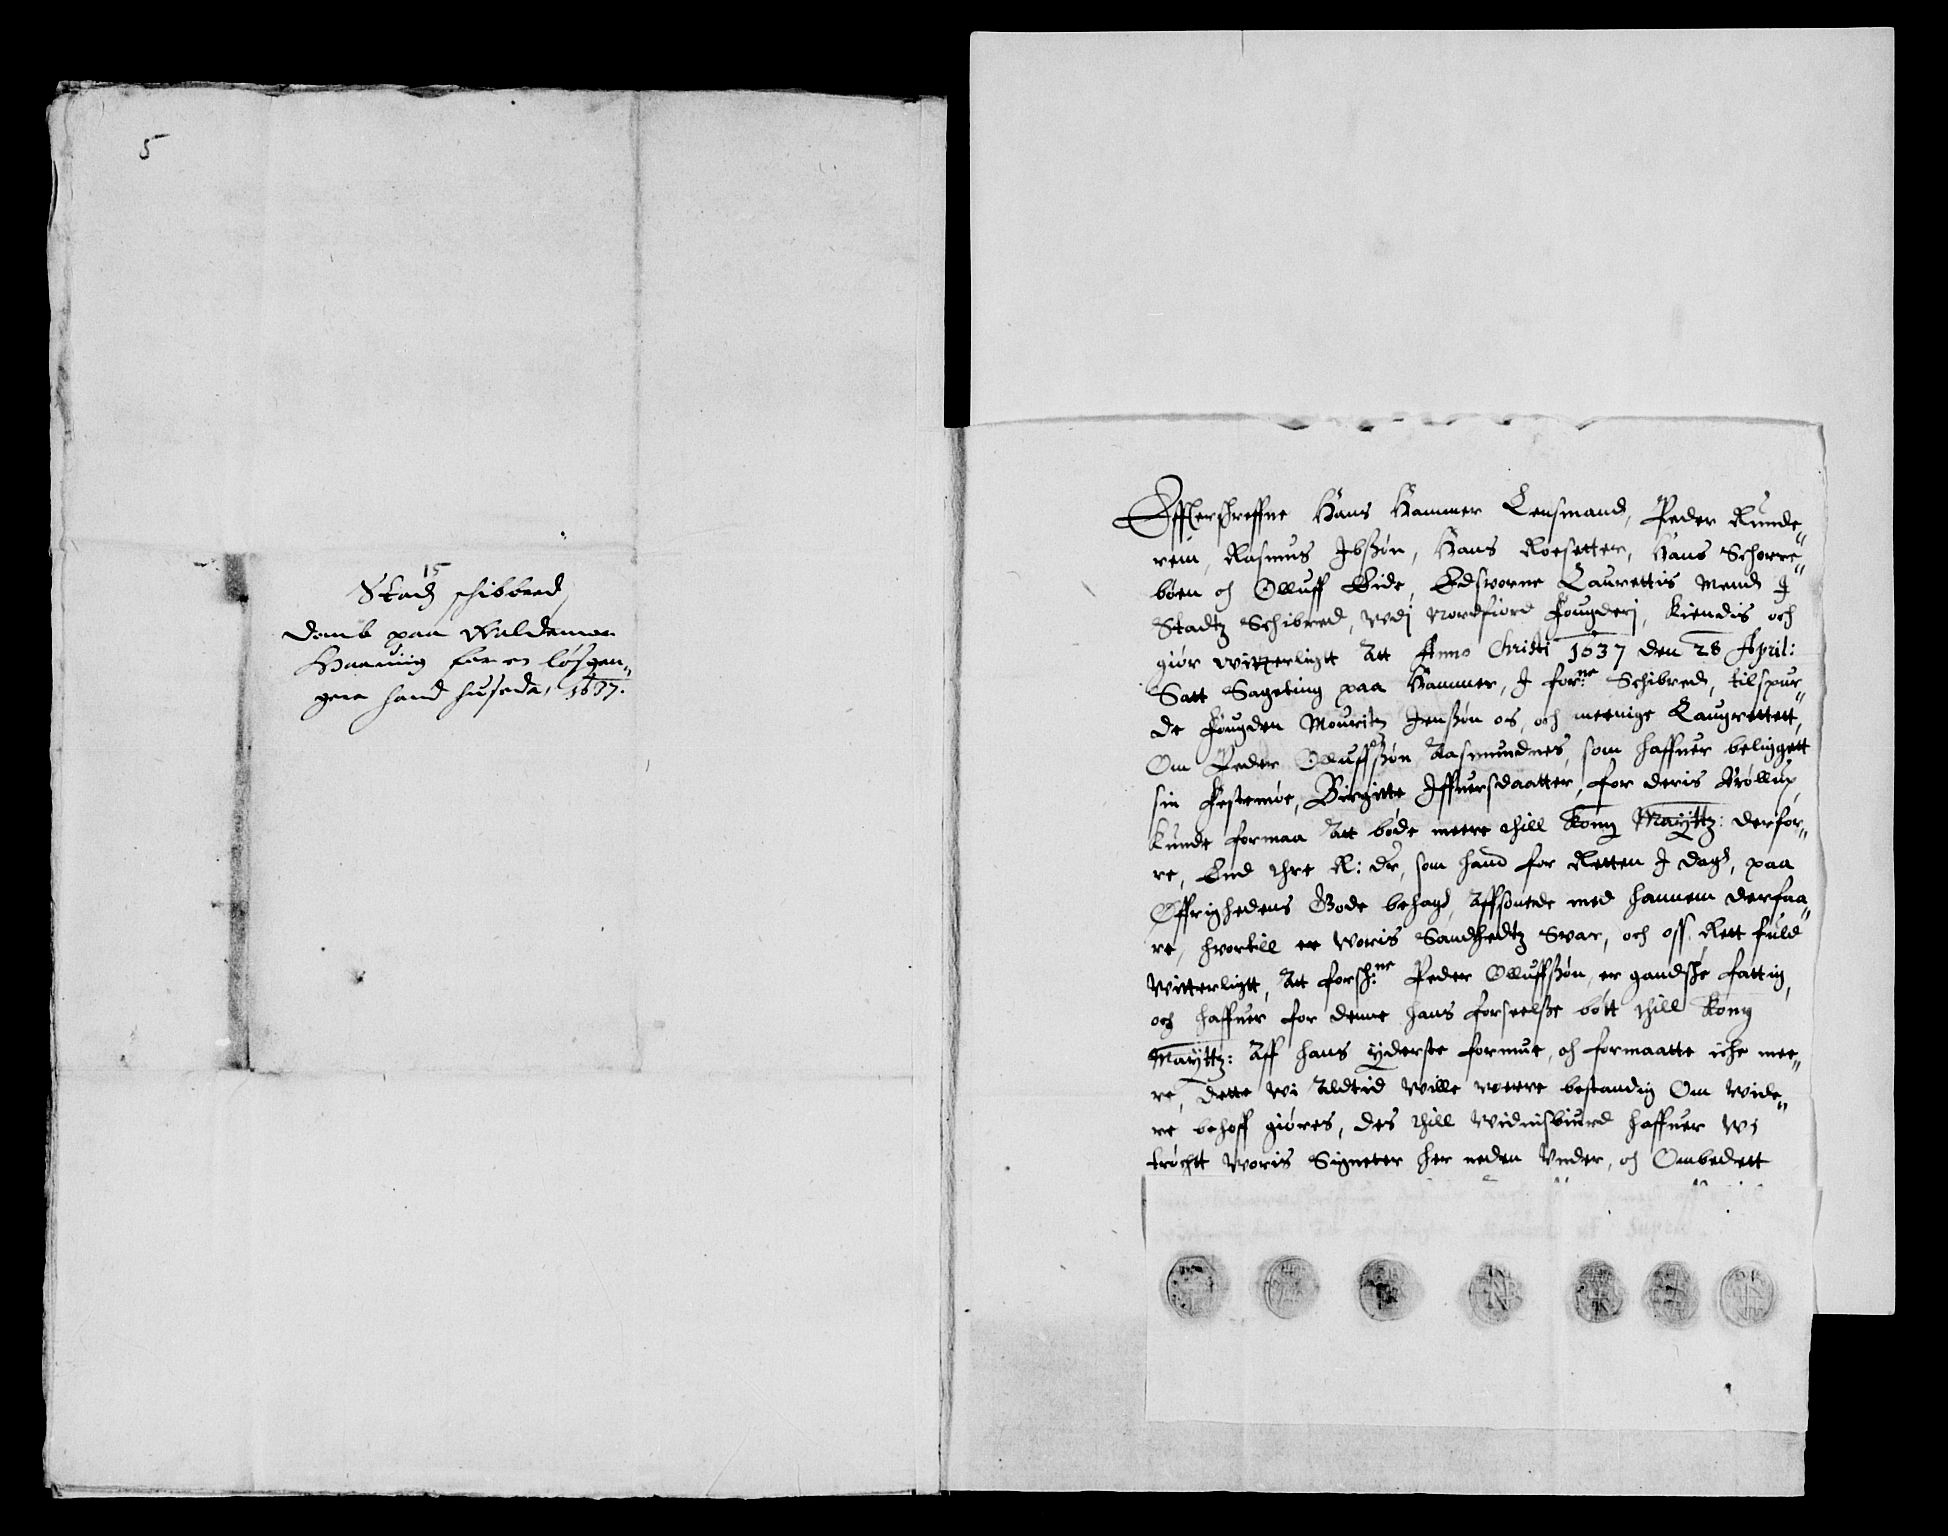 5
15
Stadz schibbred
Domb paa Waldemar
Haanig for en løsgen„
gere hand husede, 1637.
Effterschreffne Hans Hammer Lensmand, Peder Runde„
reim, Rasmus Ibßøn, Hans Roesetter, Hans Schorre„
bøen och Olluff Eide, Edsworne Laurettis Mend I
Stadtz Schibred, wdj Nordfiord Fougderj, Kiendis och
giør witterligtt Att Anno Christi 1637 den 28 April:
Satt Sageting paa Hammer, I forne Schibred, tilspur„
de Fougden Mouritz Jenßøn os, och meenige Laugrettett,
Om Peder Olluffßøn Aasmundnes, som haffuer beliggett
sin Festemøe, Birgitte Iffuersdaatter, for deris Brøllup,
Kunde formaa Att bøde meere thill Kong Mayttz: derfor„
re, End thre R: dr, som hand for Retten I dag, paa
Øffrighedens Gode behag, Affsonede med hannem derfaa„
re, hvortill er Woris Sandhedtz Svar, och oss Rett fuld
Witterligtt, Att forschne Peder Olluffßøn, er gandsche fattig,
och haffuer for denne hans forseelße bøtt thill Kong
Mayttz: Aff hans yderste formue, och formaatte iche mee„
re, Dette wi Aldtid Wille Werre bestandig Om Wide„
re behoff giøres, des thill Widnisbiurd haffuer Wj
trøchtt Woris Signeter her neden Vnder, och Ombedett